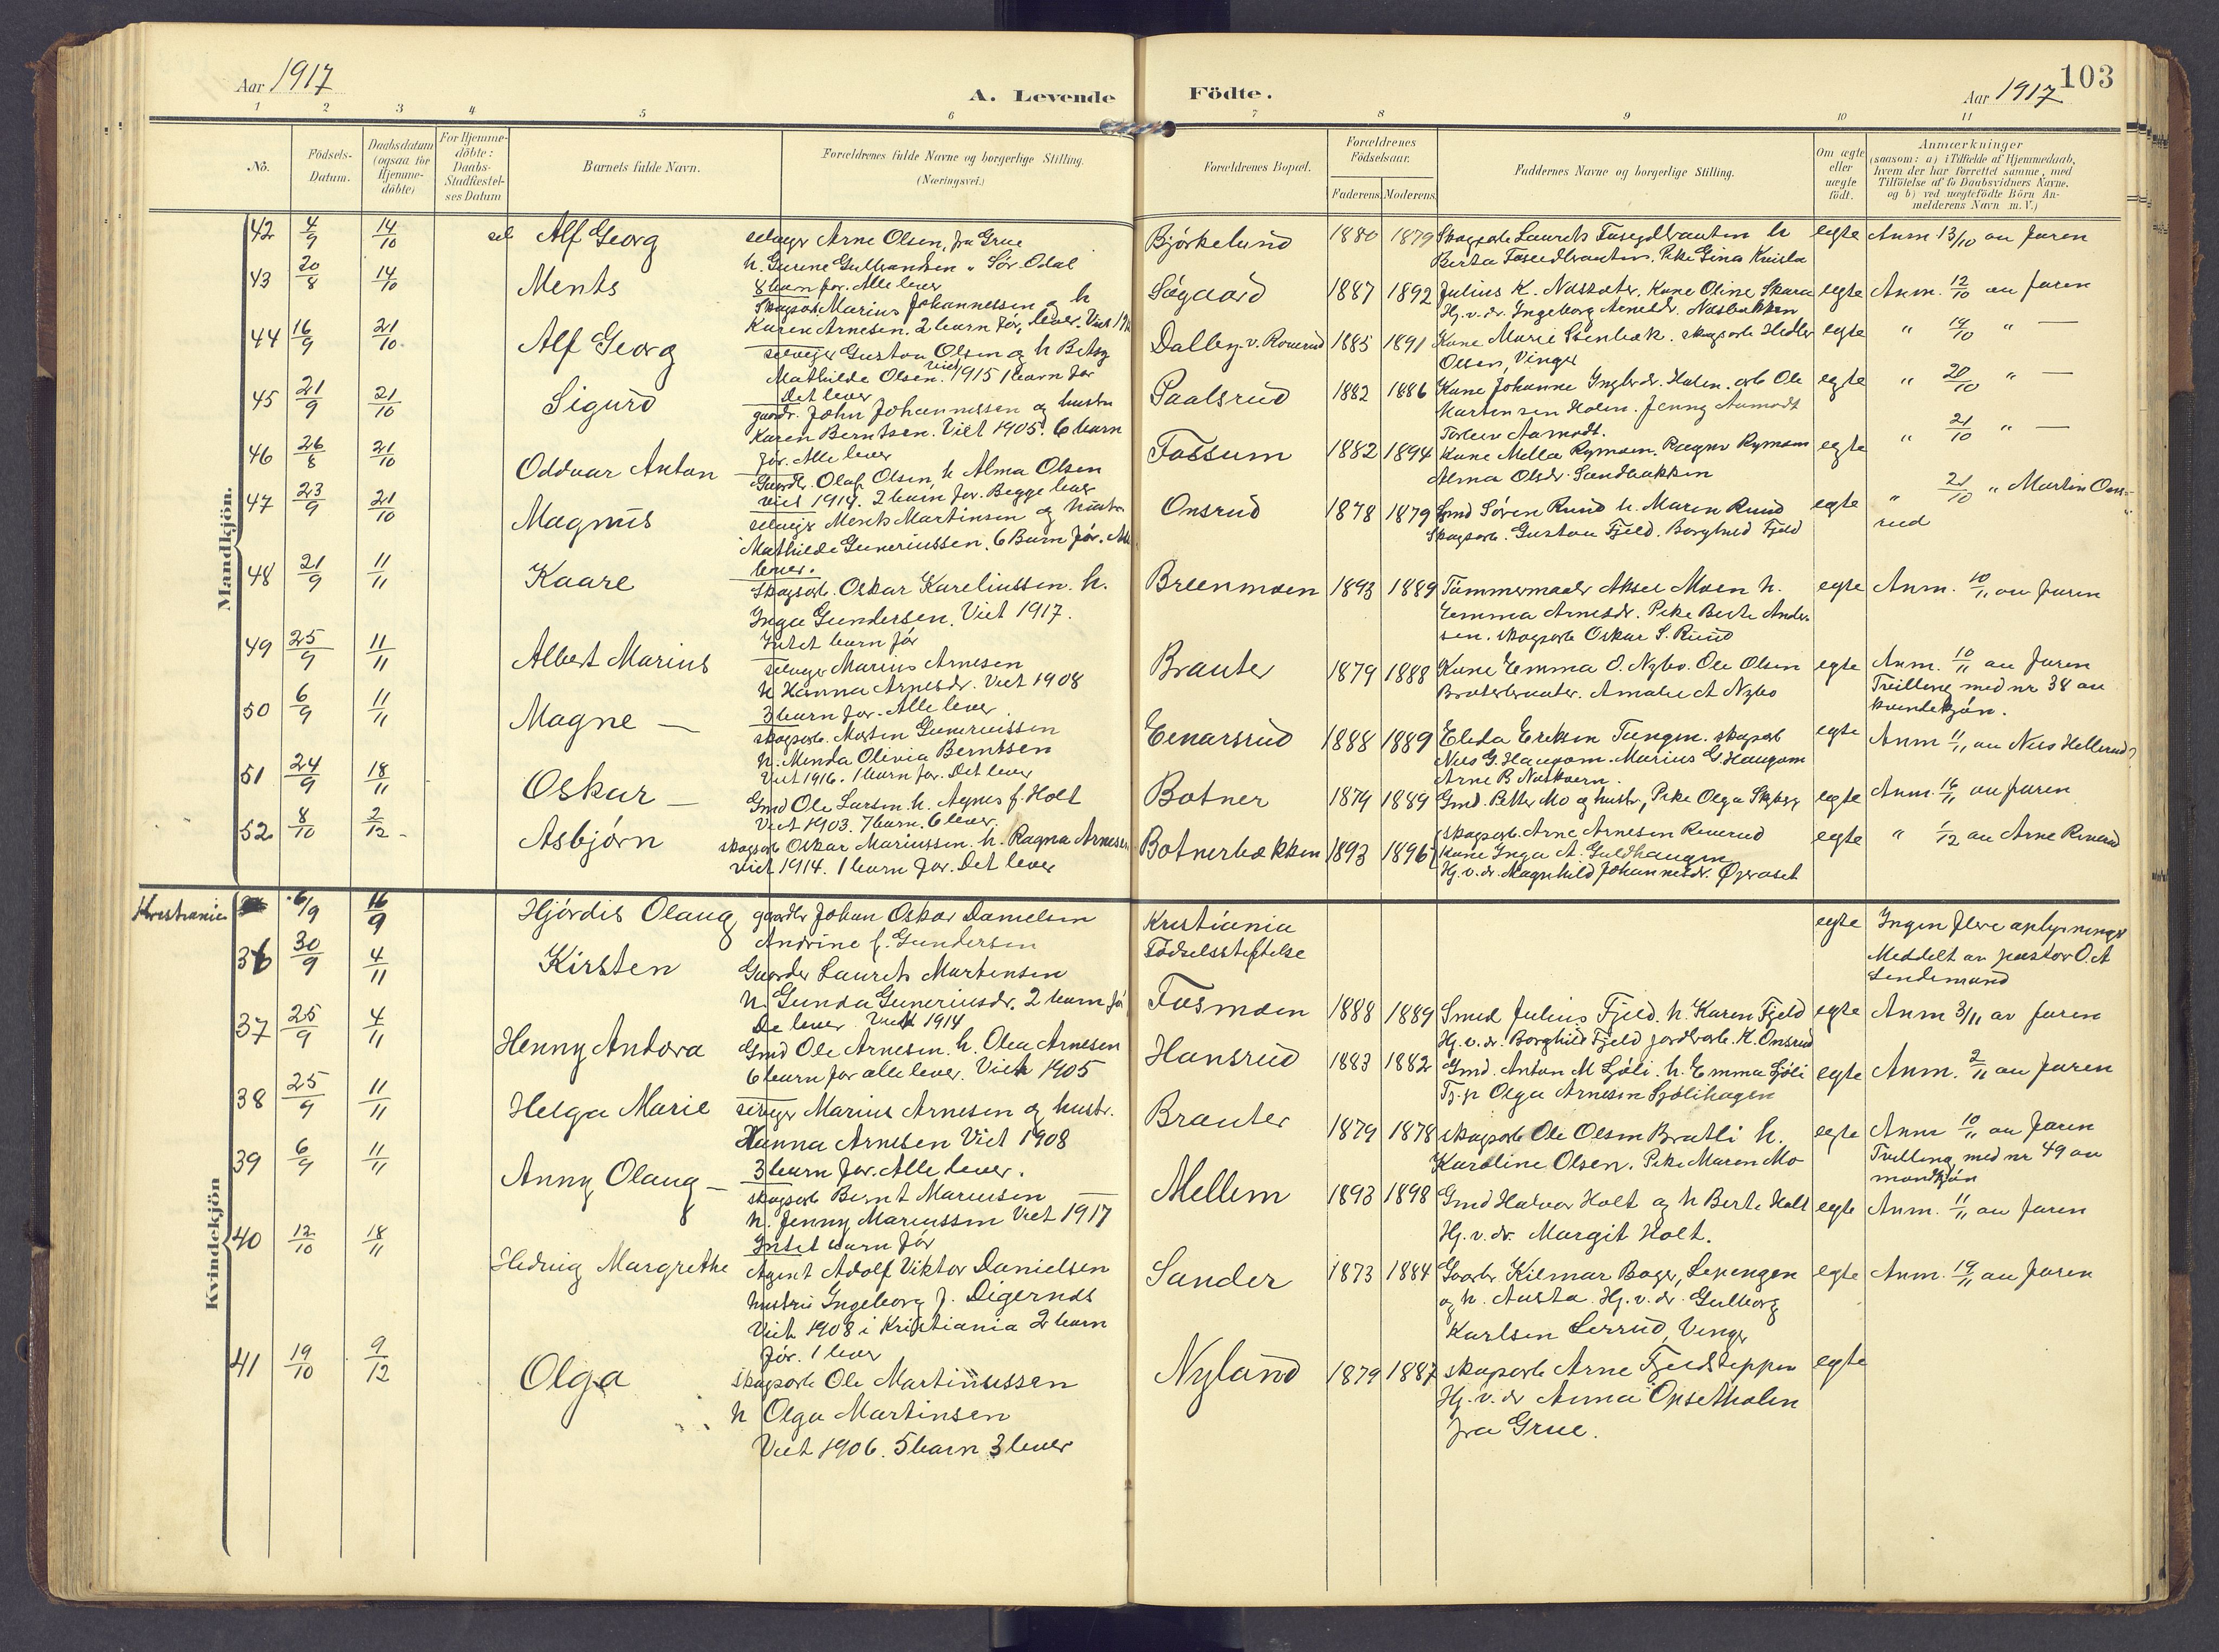 Aar 1917
A. Levende Födte.
Aar 1917
103
1 2 3 4 5 6 7 8 9 10 11
No.
Födsels-Datum.
Daabsdatum (ogsaa for Hjemme-döbte)
For Hjemme-döbte: Daabs-Stadfæstel-ses Datum
Barnets fulde Navn.
Forældrenes fulde Navne og borgerlige Stilling.
(Næringsvei.)
Forældrenes Bopæl.
Forældrenes Födselsaar.
Faderens Moderens
Faddernes Navne og borgerlige Stilling.
Om ægte eller uægte födt.
Anmærkninger
(saasom: a) i Tilfælde af Hjemmedaab,
hvem der har forrettet samme, med
Tilföielse af to Daabsvidners Navne.
og b) ved uægtefödte Börn An-
melderens Navn m. V.)
Mandkjön.
42 4/9 14/10 Alf Georg
selveger Arne Olsen, fra Grue
h. Gurine Gulbrandsen " Sör. Odal
8 barn før. Alle lever
Bjørkelund 1880 1879
egte Anm 13/10 av faren
43 20/8 14/10 Ments
Skogsarb Marius Johannessen og h
Karen Arnesen. 2 barn før, lever.
Søgaard 1887 1892
Julius K. Kone Oline Skara
Hj. v. dr. Ingeborg
egte Anm. 12/10 av faren
44 16/9 21/10 Alf Georg
selveger Gustav Olsen og h Betsy
Mathilde Olsen. Viet 1915 1 barn før
Det lever
Dalby 1885 1891
Kone Marie Stenbæk. skogsarb
Olsen, Vinger
egte " 19/10 " —
45 21/9 21/10 Sigurd
gaardb. John Johannessen og hustru
Karen Berntsen. Viet 1905. 6 barn
før. Alle lever
Paalsrud 1882 1886
Kone Johanne Holen. arb Ole
Martinsen Holen. Jenny Aamodt
Aamodt.
egte " 20/10 " —
46 26/8 21/10 Oddvar Anton
Gaardbr. Olaf Olsen, h Alma Olsen
viet 1914. 2 barn før. Begge lever
Fossum 1882 1894
Kone Milla Rymoen. Ragna Rymoen
Alma Olsdr. Sandbakken
egte " 21/10 " —
47 23/9 21/10 Magnus
selveger Ments Martinsen og hustru
Mathilde Guneriussen. 6 Barn før. Alle
lever.
Onsrud 1878 1879
Gmd Søren Rund h. Maren Rund
Skogsarb. Gustav Fjeld. Borghild Fjeld
egte " 21/10 " Martin Ons-
rud
48 21/9 11/11 Kaare
skogsarb. Oskar Kareliussen. h.
Inga Gundersen. Viet 1917.
Intet barn før
Breenmoen 1893 1889
Tømmermaaler Aksel Moen h.
Emma Arnesdr. Pike Berte Ander-
sen. skogsarb Oskar S. Rund
egte Anm. 10/11 av faren
49 25/9 11/11 Albert Marius
selveger Marius Arnesen
h Hanna Arnesdr. Viet 1908
3 barn før. Alle lever
Brauter 1879 1888
Kone Emma O. Nybo. Ole Olsen
Amalie A Nybo
egte Anm. 10/11 av faren
Tvilling med nr 38 av
kvindekjøn.
50 6/9 11/11 Magne —
skogsarb. Morten Guneriussen
h. Minda Olivia Berntsen
Viet 1916. 1 barn før. Det lever
Einarsrud 1888 1889
Elida Eriksen Tangen. skogsarb
Nils G. Haugom. Marius G. Haugom
Arne B
egte Anm 11/11 av Nils Hellerud
51 24/9 18/11 Oskar —
Gmd Ole Larsen. h. Agnes f. Holt
Viet 1903. 7 barn. 6 lever.
Botner 1879 1889
Gmd. Petter Mo og hustru, Pike Olga
egte Anm. 16/11 av faren
52 8/10 2/12 Asbjørn
skogsarb Oskar Mariussen. h. Ragna Arnesen
viet 1914. 1 barn før. Det lever
Botnerbakken 1893 1896
skogsarb. Arne Arnesen
Kone Inga A. Guldhaugen
Hj. v. dr. Magnhild Johannesdr.
egte " 1/12 av Arne
Kvindekjön
Kristiania 6/9 16/9 Hjørdis Olaug
gaardbr Johan Oskar Danielsen
Andrine f. Gundersen
Kristiania
Fødselsstiftelse
egte Ingen flere oplysninger
Meddelt av pastor O. A
36 30/9 4/11 Kirsten
Gaardbr Laurits Martinsen
h. Gunda Guneriusdr. 2 barn før
De lever. Viet 1914
Fosmoen 1888 1889
Smed Julius Fjeld. h. Karen Fjeld
Hj. v. dr. Borghild Fjeld jordbrarb. K. Onsrud
egte Anm 3/11 av faren
37 25/9 4/11 Henny Andora
Gmd Ole Arnesen. h. Olea Arnesen
6 barn før alle lever. Viet 1905
Hansrud 1883 1882
Gmd. Anton M Sjøli. h. Emma Sjøli
Olga Arnesen Sjølihagen
egte Anm. 2/11 av faren
38 25/9 11/11 Helga Marie
selveger Marius Arnesen og hustr.
Hanna Arnesen Viet 1908
3 barn før. Alle lever.
Brauter 1879 1878
skogsarb Ole Olsen Bratli h.
Karoline Olsen. Pike Maren Mo
egte Anm 10/11 av faren
Tvilling med nr 49 av
mandkjøn
39 6/9 11/11 Anny Olaug —
skogsarb Bernt Mariusen
h. Jenny Mariussen Viet 1917
Intet barn før
Mellem 1893 1898
Gmd Halvor Holt og h Berte Holt
Hj. v. dr. Margit Holt.
egte Anm. 11/11 av faren
40 12/10 18/11 Hedvig Margrethe
Agent Adolf Viktor Danielsen
hustru Ingeborg f. Digernes
Viet 1908 i Kristiania 2 barn
før. 1 lever
Sander 1873 1884
Gaardbr. Kilmar Boger, Sepengen
og h. Austa. Hj. v. dr. Gulborg
Karlsen Lerrud, Vinger
egte Anm. 19/11 av faren
41 19/10 9/12 Olga
skogsarb Ole Martinussen
h Olga Martinsen
Viet 1906. 5 barn 3 lever
Nyland 1879 1887
skogsarb Arne
Hj. v. dr Anna Opsetholen
fra Grue.
egte